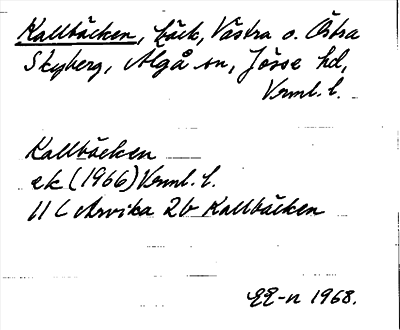 Kallbäcken, bäck, Västra o. Östra
Skyberg, Älgå sn, Jösse hd,
Värml. l.
Kallbäcken
ek (1966) Värml. l.
11 C Arvika 2b Kallbäcken
EE-n 1968.